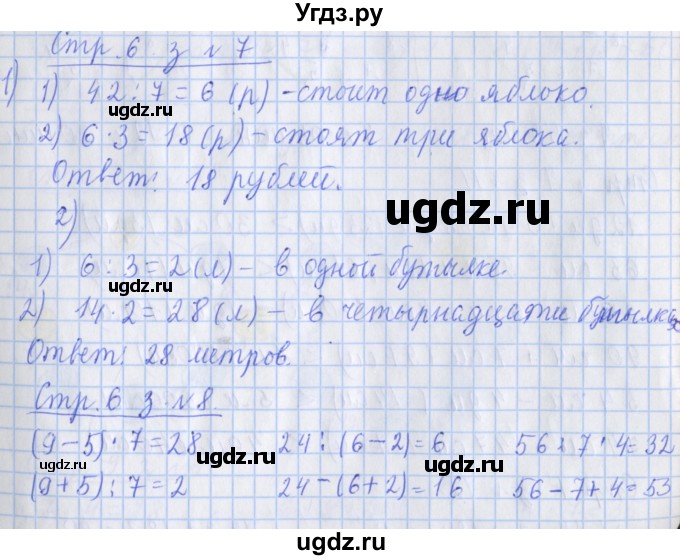 Угдз.ру
Стр. 6 з № 7
1) 1) 42 : 7 = 6 (р) - стоит одно яблоко.
2) 6 · 3 = 18 (р) - стоят три яблока.
Ответ: 18 рублей.
2)
1) 6 : 3 = 2 (л) - в одной бутылке.
2) 14 · 2 = 28 (л) - в четырнадцати бутылках
Ответ: 28 метров.
Стр. 6 з. № 8.
(9 - 5) · 7 = 28 24 : (6 - 2) = 6 56 : 7 · 4 = 32
(9 + 5) : 7 = 2 24 - (6 + 2) = 16 56 - 7 + 4 = 53
ugdz.ru
ugdz.ru
ugdz.ru
ugdz.ru
ugdz.ru
ugdz.ru
ugdz.ru
ugdz.ru
ugdz.ru